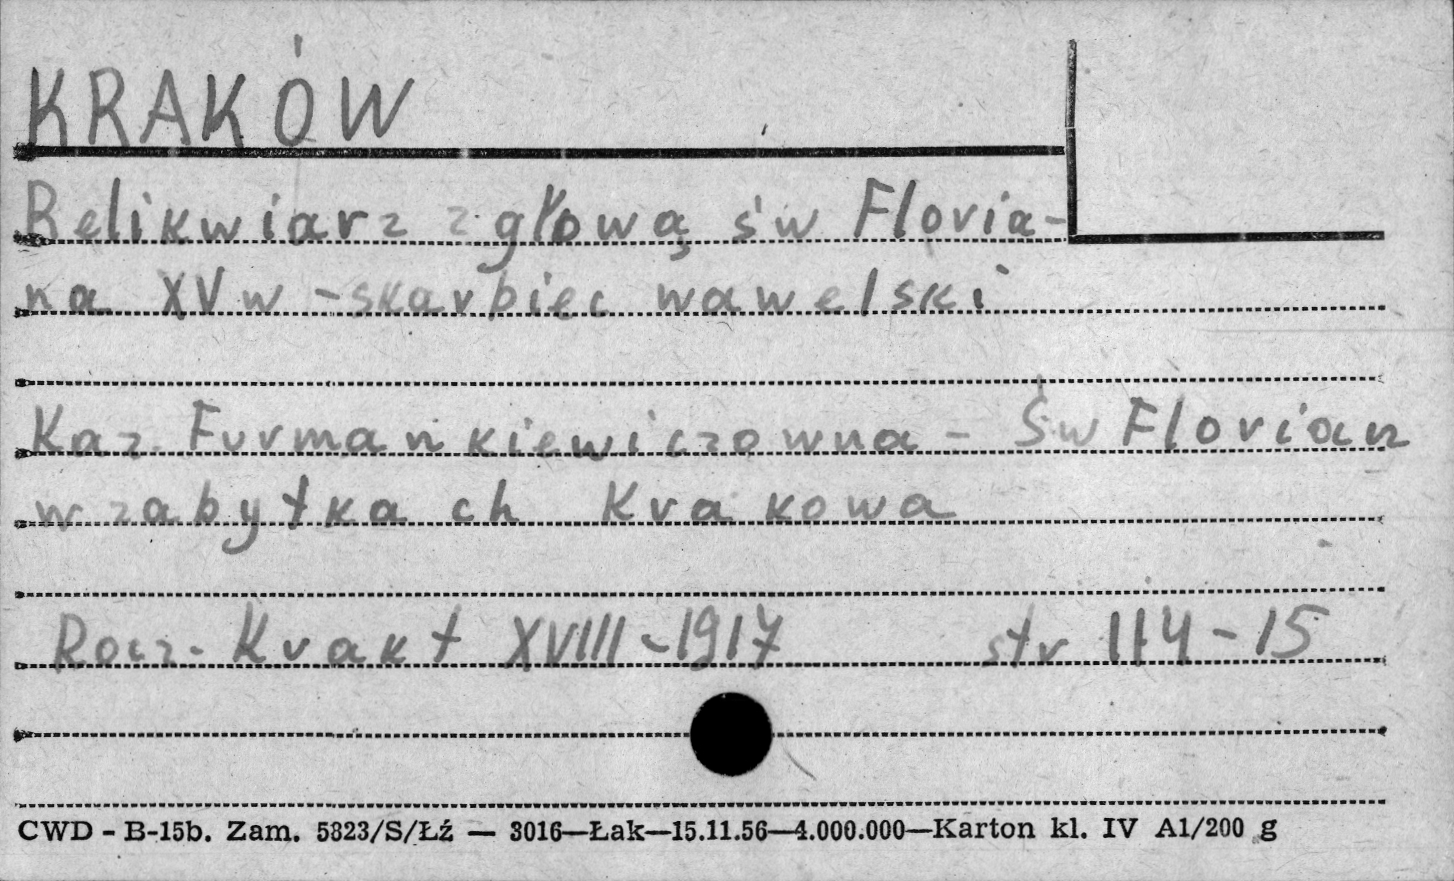 KRAKÓW
Relikwiarz z głową św Floria-
na XV w - skarbiec wawelski
Kaz. Furmankiewiczowna - Św Florian
w zabytkach Krakowa
Rocz. Krak t XVIII - 1917 str 114 - 15
CWD - B-15b. Zam. 5823/S/Łź — 3016—Łak—15.11.56—4.000.000—Karton kl. IV A1/200 g